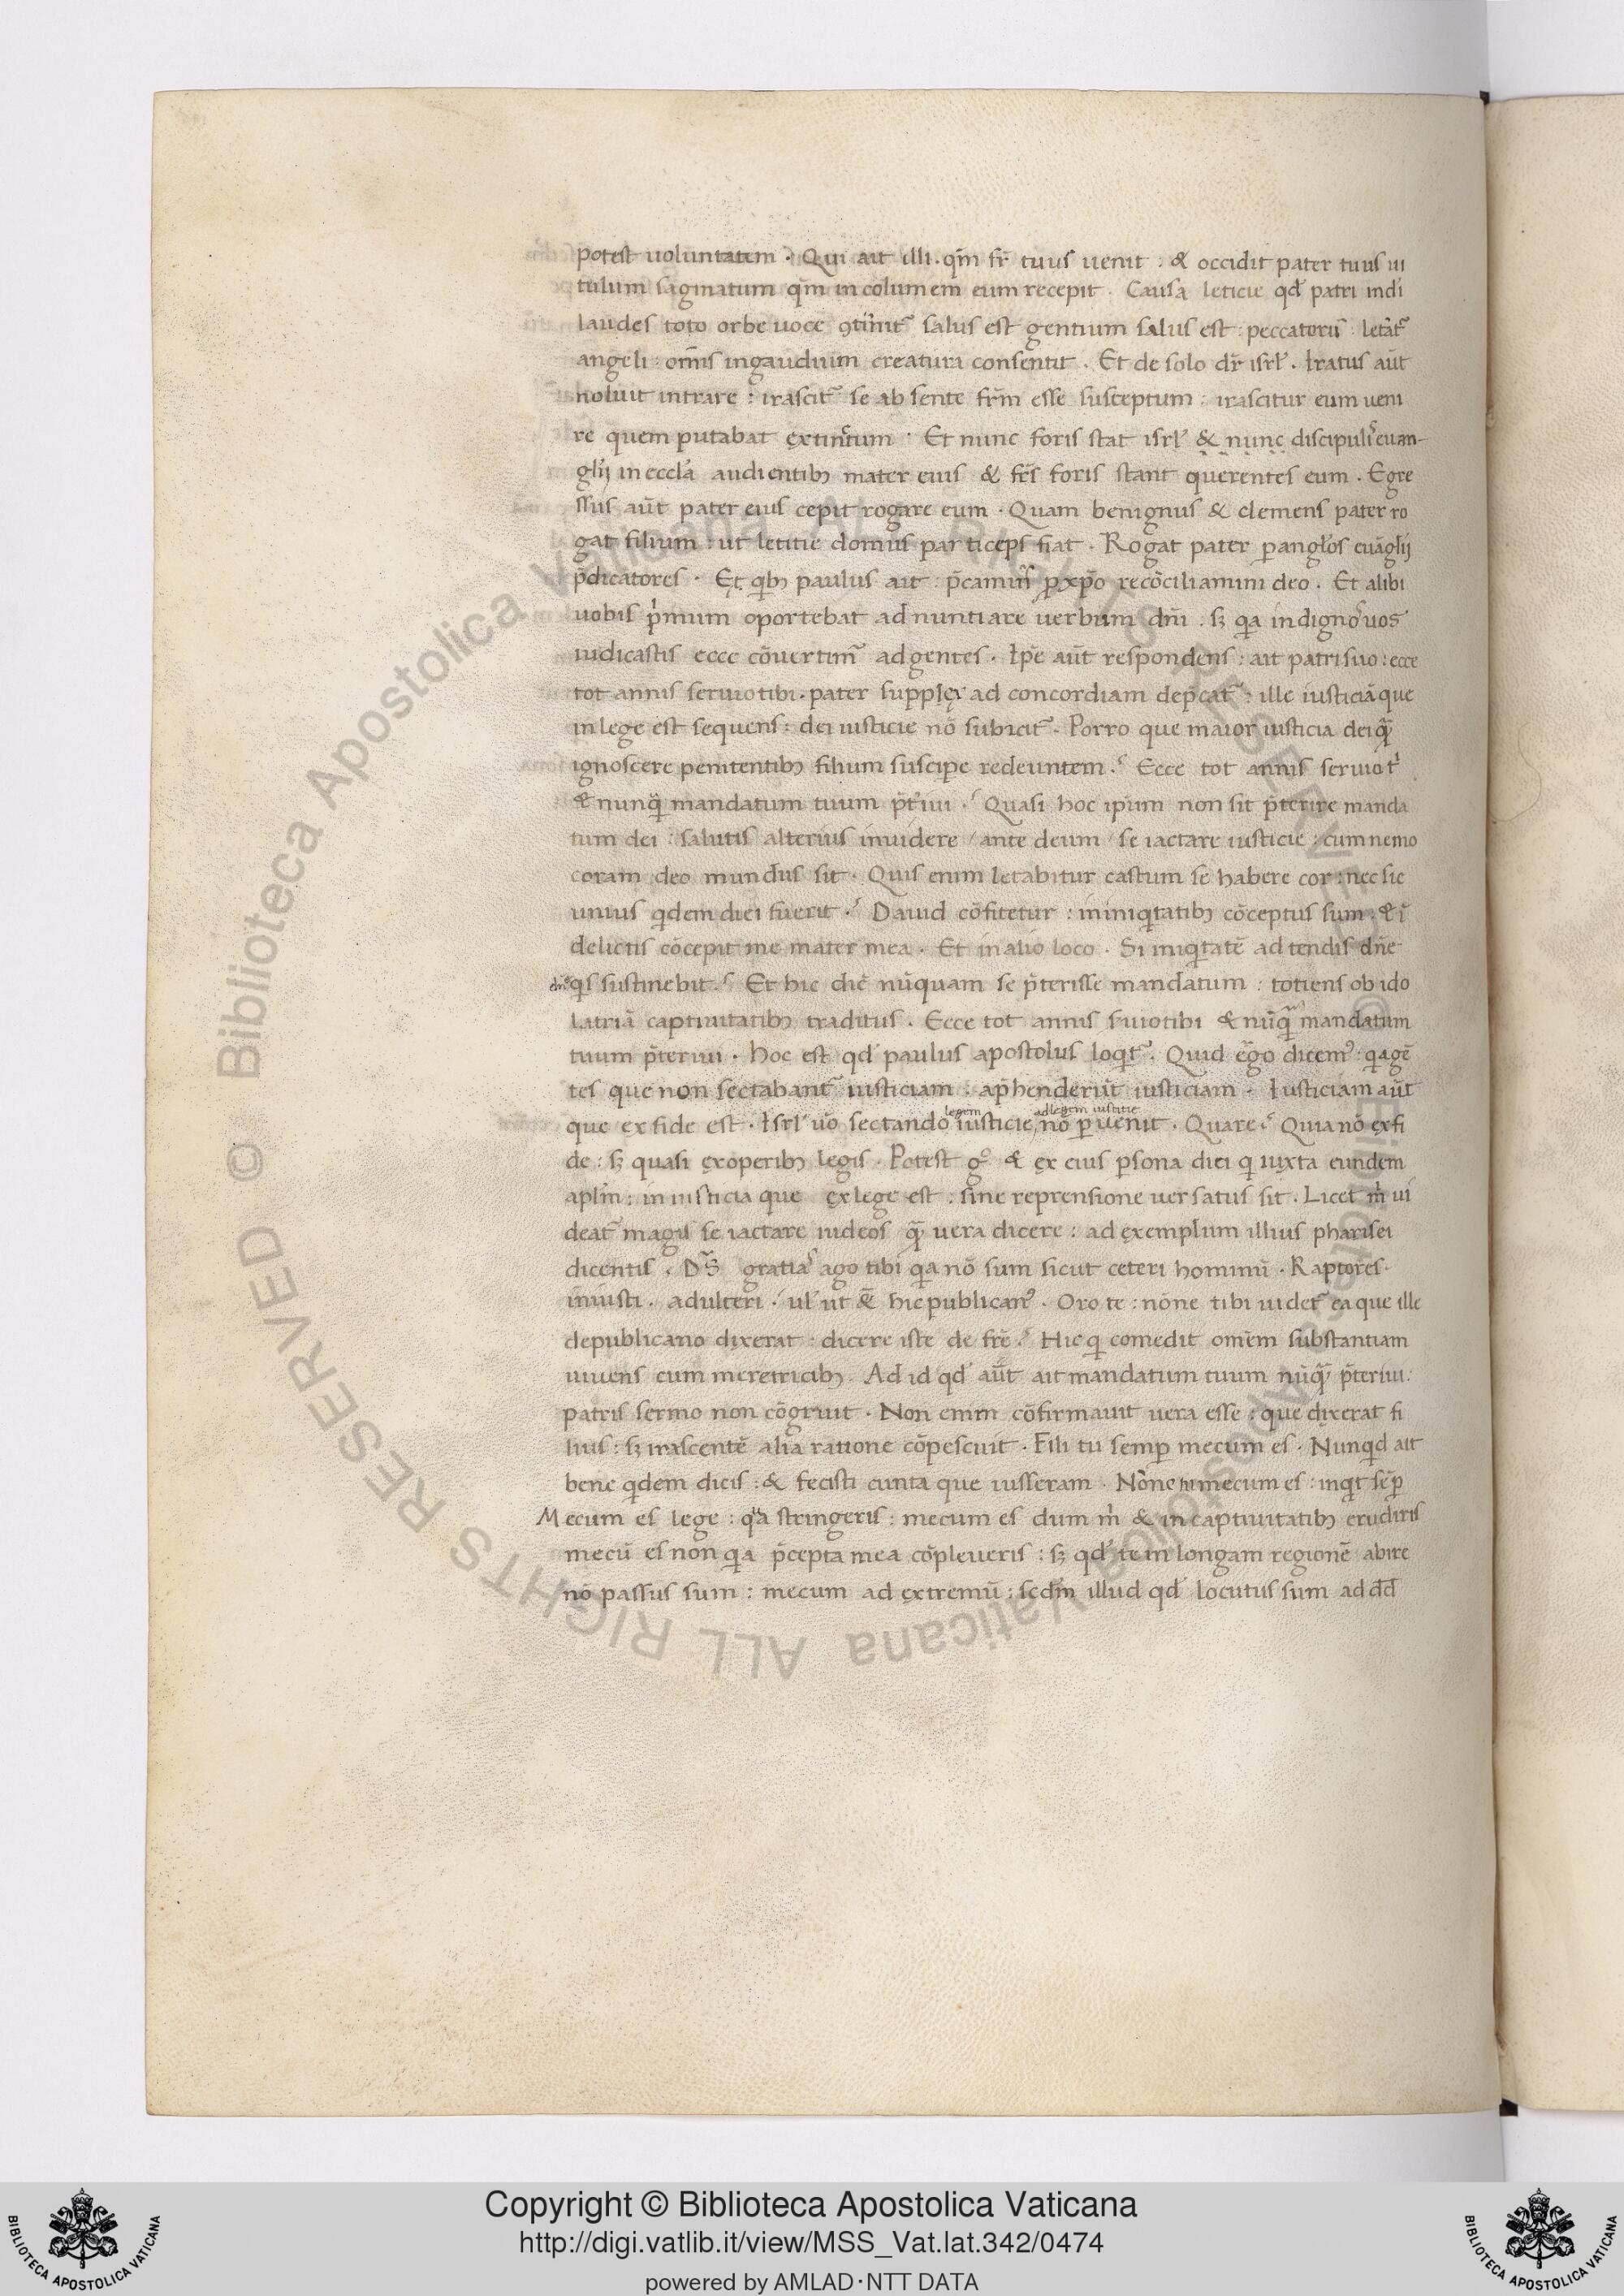 potest uoluntatem · Qui ait illi · qm̄ fr̄ tuus uenit : & occidit pater tuus ui
tulum saginatum qm̄ incolumem eum recepit · Causa leticie qd̓ patri indi
laudes toto orbe uoce salus est gentium salus est : peccatorū : letat̃
angeli : omīs ingaudium creatura consentit · Et de solo dr̄ isrl̓ · Iratus aūt
noluit intrare : irascit̃ se absente frm̄ esse susceptum : irascitur eum ueni
re quem putabat extinctum · Et nunc foris stat isrl̓ & nunc discipuli euan-
glii in eccl̓a audientib; mater eius & frs̄ foris stant querentes eum · Egre
ssus aūt pater eius cepit rogare eum · Quam benignus & clemens pater ro
gat filium : ut letitie domus particeps fiat · Rogat pater p angl̓os euāglij
p̄dicatores · Et qib; paulus ait : p̄camini p xp̄o recōciliamini deo · Et alibi
uobis pͥmum oportebat adnuntiare uerbum dn̄i : s; qa indigno uos
iudicastis ecce cōuertim̃ adgentes · Ip̄e aūt respondens : ait patri suo : ecce
tot annis seruio tibi · pater supplex ad concordiam dep̄cat̃ : ille iusticiā que
in lege est sequens : dei iusticie nō subicit̃ · Porro que maior iusticia dei qͣ̄
ignoscere penitentib; filium suscipe redeuntem ? Ecce tot annis seruio tͥ
& nunqͣ̄ mandatum tuum p̄tiui · Quasi hoc ip̄um non sit p̄terire manda
tum dei : salutis alterius inuidere / ante deum / se iactare iusticie : cum nemo
coram deo mundus sit · Quis enim letabitur castum se habere cor : nec sic
unius qdem diei fuerit ? Dauid cōfitetur : in iniqͥtatib; cōceptus sum : & ī
delictis cōcepit me mater mea · Et in alio loco · Si iniqͥtatē adtendis dn̄e
dn̄e qͥs sustinebit ? Et hic dic̄ nūquam se p̄terisse mandatum : totiens ob ido
latriā captiuitatib; traditus · Ecce tot annis s̓uio tibi & nūqͣ̄ mandatum
tuum p̄teriui · hoc est qd̓ paulus apostolus loqͥt̃ · Quid ego dicem̓ : q̄a gē
tes que non sectabant̃ iusticiam : aphenderūt iusticiam · Iusticiam aūt
que ex fide est · Isrl̓ uō sectando legem iusticie ad legem iustitie nō puenit · Quare ? Quia nō exfi
de : s; quasi exoperib; legis · Potest gͦ & ex eius psona dici qͥ iuxta eundem
aplm̄ : in iusticia que ex lege est : sine reprensione uersatus sit · Licet mͥ ui
deat̃ magis se iactare iudeos qͣ̄ uera dicere : ad exemplum illius pharisei
dicentis · Ds̄ gratias ago tibi qa nō sum sicut ceteri hominū · Raptores ·
iniusti · adulteri · ul̓ ut & hic publican̓ · Oro te : nōne tibi uidet̃ ea que ille
depublicano dixerat : dicere iste de fr̄e ? Hic qͥ comedit omēm substantiam
uiuens cum meretricib; Ad id qd̓ aūt ait mandatum tuum nūqͣ̄ p̄teriui :
patris sermo non cōgruit · Non enim cōfirmauit uera esse : que dixerat fi
lius : s; irascentē alia ratione cōpescuit · Fili tu semp mecum es · Nunqd ait
bene qdem dicis : & fecisti cunta que iusseram · Nōne tu mecum es : inqͥt sēp
Mecum es lege : qͣ stringeris : mecum es dum mͥ & in captiuitatib; erudiris
mecū es non qa p̄cepta mea cōpleueris : s; qd̓ te in longam regionē abire
nō passus sum : mecum ad extremū : scdm̄ illud qd̓ locutus sum ad dd̄
Copyright © Biblioteca Apostolica Vaticana
http://digi.vatlib.it/view/MSS_Vat.lat.342/0474
powered by AMLAD·NTT DATA
BIBLIOTECA APOSTOLICA VATICANA
BIBLIOTECA APOSTOLICA VATICANA
© Biblioteca Apostolica Vaticana ALL RIGHTS RESERVED
© Biblioteca Apostolica Vaticana ALL RIGHTS RESERVED